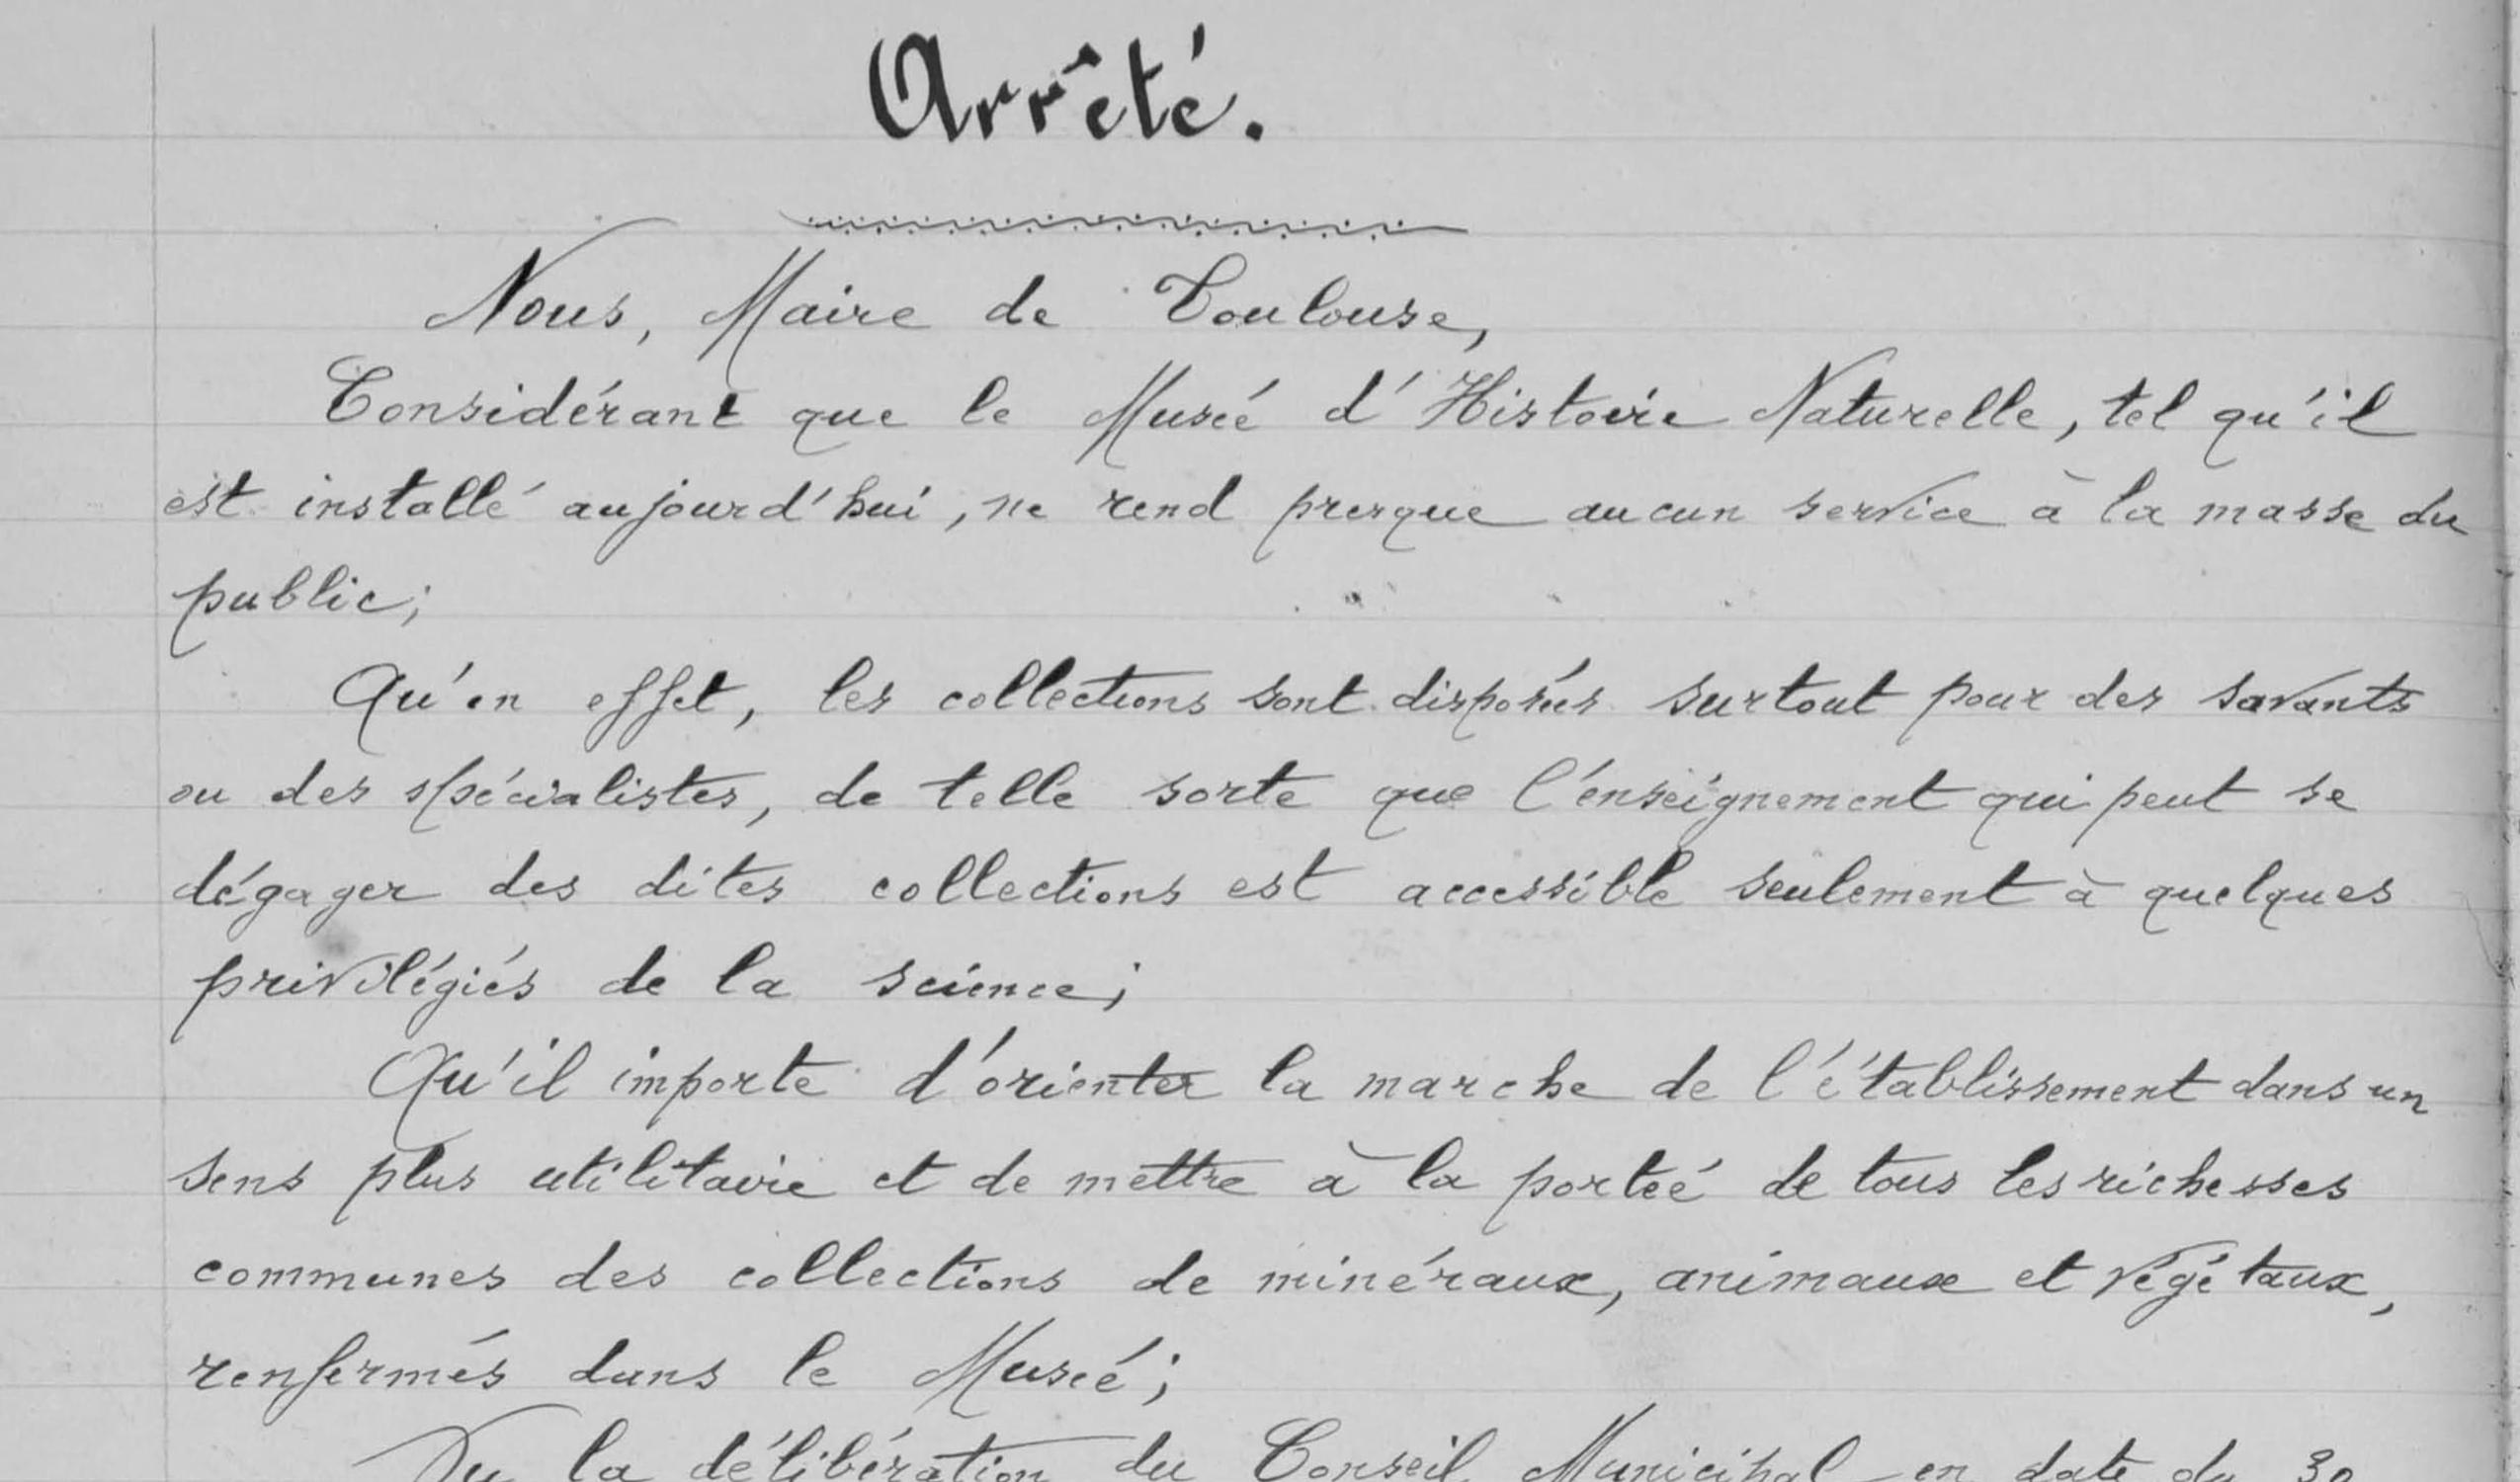 Arrêté.
Nous, Maire de Toulouse,
Considérant que le Musée d'Histoire Naturelle, tel qu'il
est installé aujourd'hui, ne rend presque aucun service à la masse du
public;
Qu'en effet, les collections sont disposées surtout pour des savants
ou des spécialistes, de telle sorte que l'enseignement qui peut se
dégager des dites collections est accessible seulement à quelques
privilégiés de la science;
Qu'il importe d'orienter la marche de l'établissement dans un
sens plus utilitaire et de mettre à la portée de tous les richesses
communes des collections de minéraux, animaux et végétaux,
renfermés dans le Musée;
Vu la délibération du Conseil Municipal en date du 30